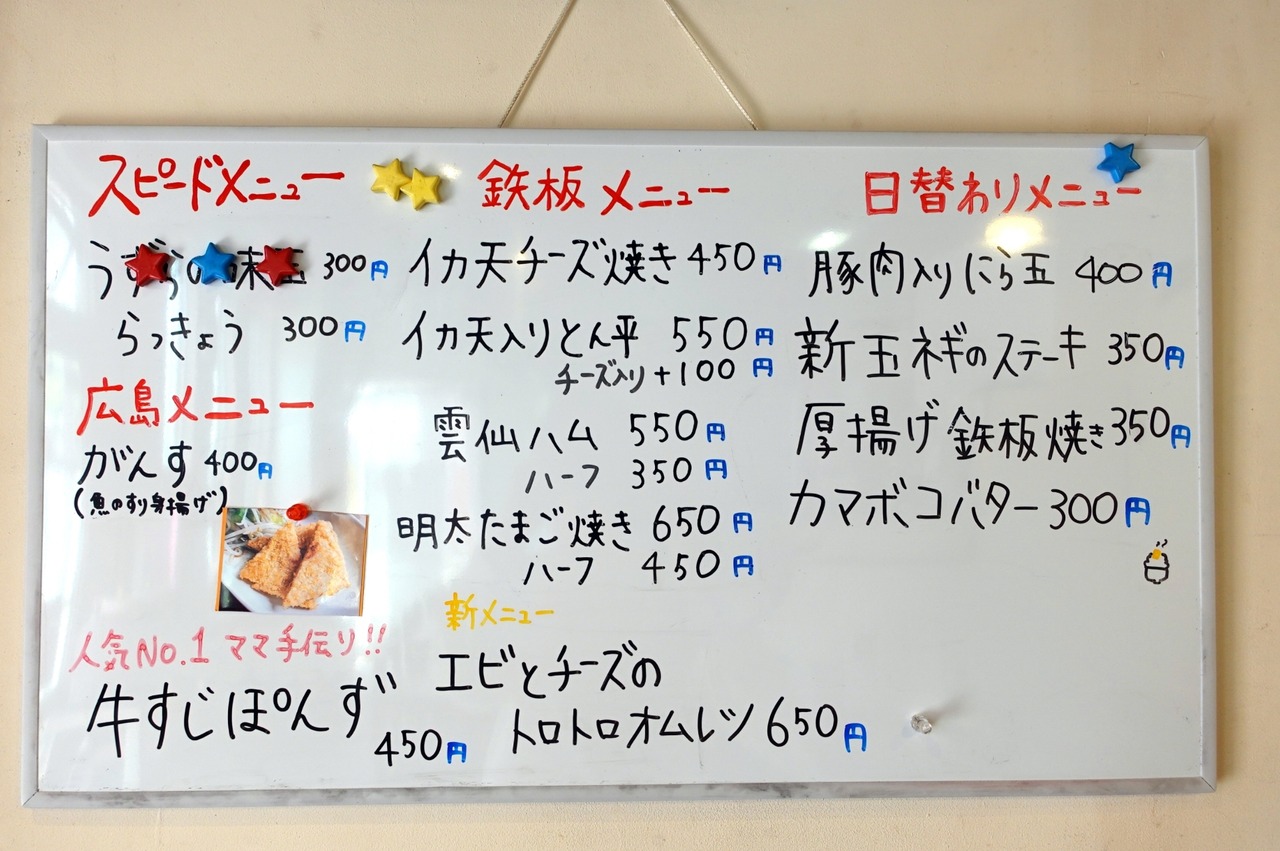 スピードメニュー
う の味玉 300円
らっきょう 300円
広島メニュー
がんす 400円
(魚のすり身揚げ)
人気No.1 ママ手伝り!!
牛すじぽんず
450円
鉄板メニュー
イカ天チーズ焼き 450円
イカ天入りとん平 550円
チーズ入り+100円
雲仙ハム 550円
ハーフ 350円
明太たまご焼き 650円
ハーフ 450円
新メニュー
エビとチーズの
トロトロオムレツ 650円
日替わりメニュー
豚肉入りにら玉 400円
新玉ネギのステーキ 350円
厚揚げ鉄板焼き 350円
カマボコバター 300円